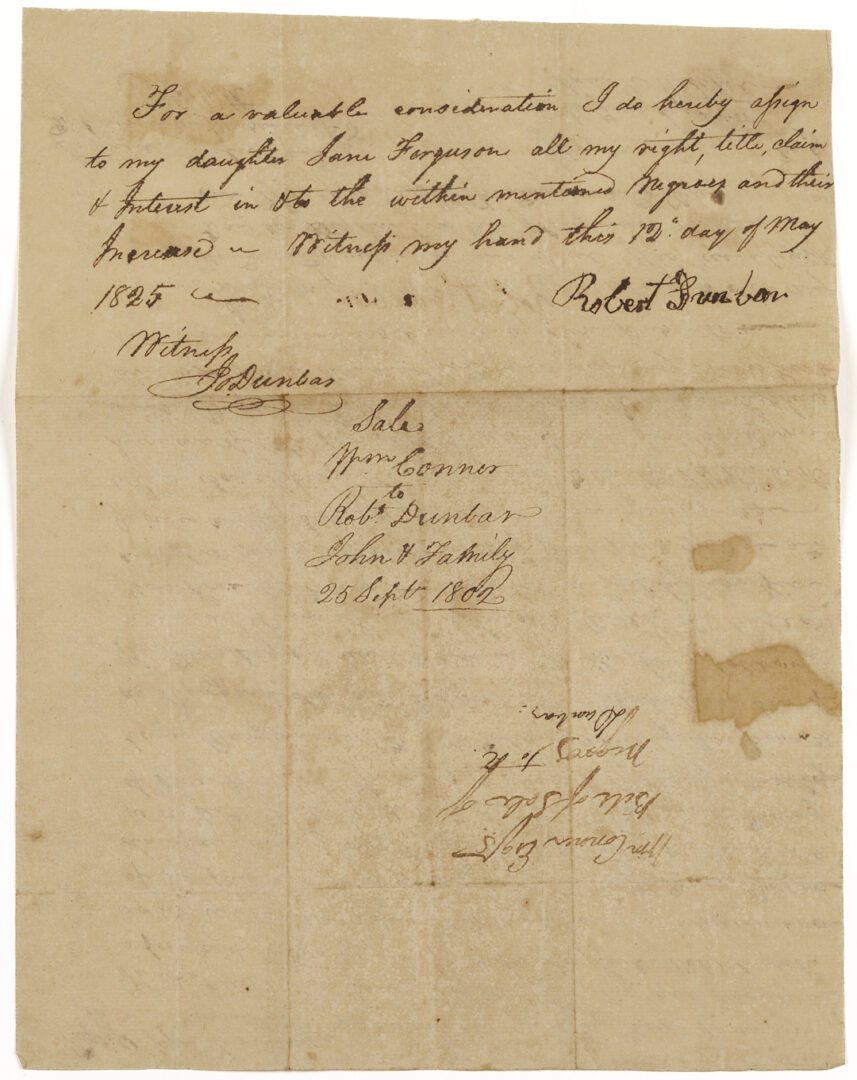 For a valuable consideration I do hereby assign
to my daughter Jane Ferguson all my right, title, claim
& Interest in & to the within mentioned Negroes and their
Increase — Witness my hand this 12th day of May
1825 —
Robert Dunbar
Witness
Jo. Dunbar
Sale
Wm Conner
to
Robt Dunbar
John & Family
25 Sept 1802
Wm Conner Esqrs
Bill of Sale of
Negroes to R.
Dunbar.